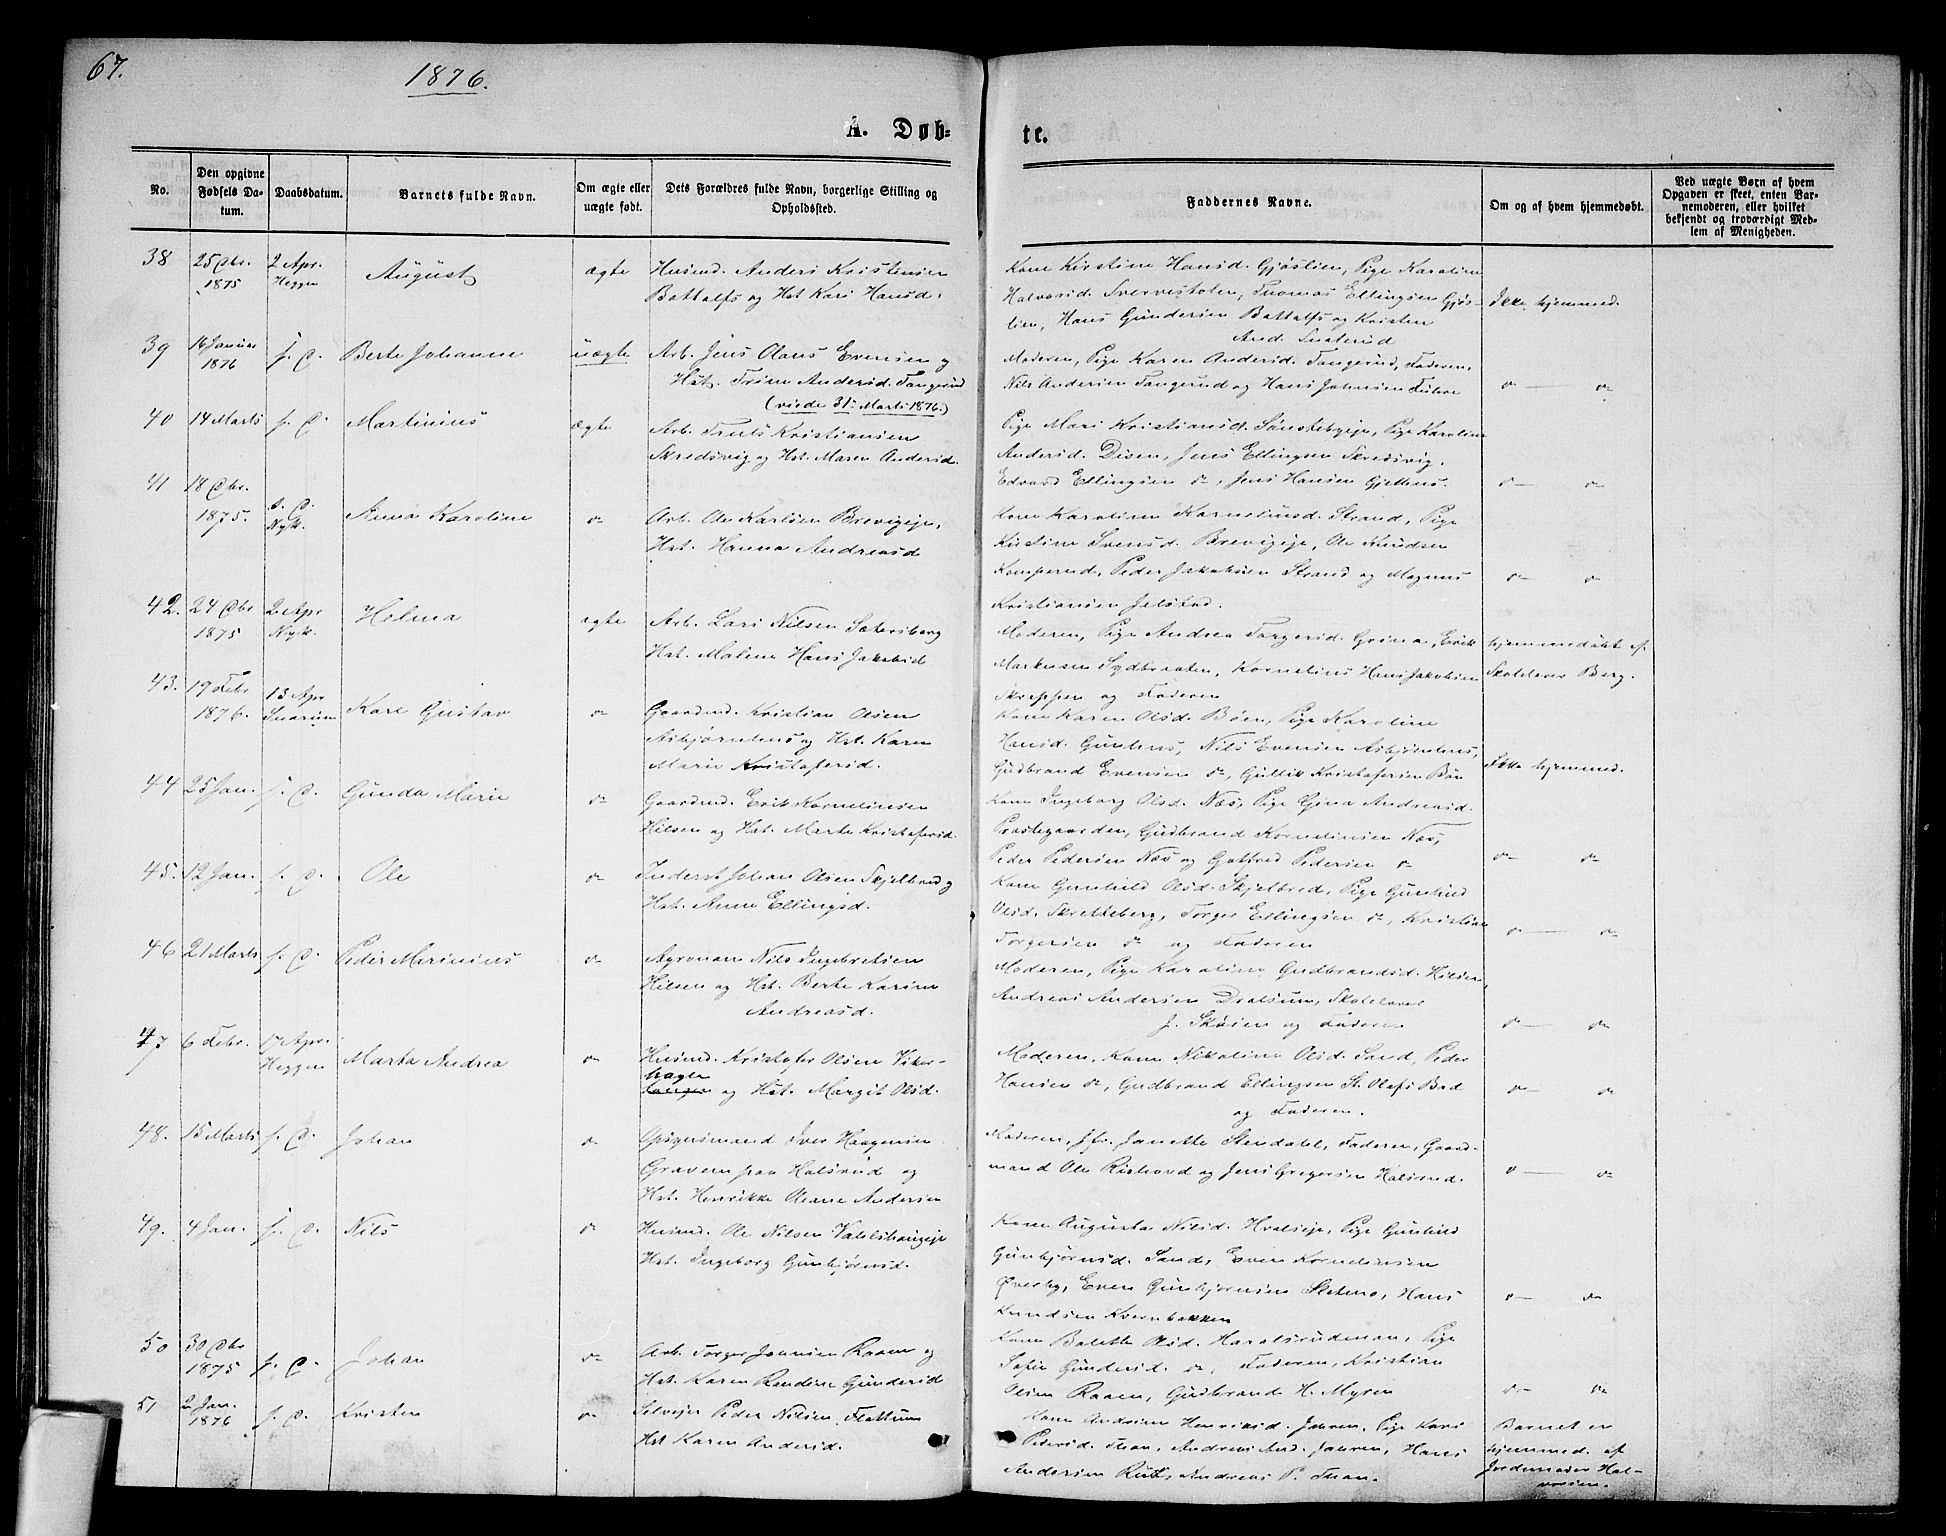 67.
1876.
A. Døb-
te.
No.
Den opgivne Fødsels Da-tum.
Daabsdatum.
Barnets fulde Navn.
Om ægte eller uægte født.
Dets Forældres fulde Navn, borgerlige Stilling og Opholdssted.
Faddernes Navne.
Om og af hvem hjemmedøbt.
Ved uægte Børn af hvem Opgaven er skeet, enten Bar-nemoderen, eller hvilket bekjendt og troværdigt Med-lem af Menigheden.
38 25 Dbr. 1875 2 Apr. Heggen August ægte
Husmd. Anders Kristensen
Battalfs og Hst Kari Hansd.
Kone Kirstine Hansd. Gjøslien, Pige Karoline
Halvorsd. Thomas Ellingsen Gjøs-
lien, Hans Gundersen Battalfs og Kristen
And.
Ikke hjemmed.
39 16 Januar 1876 s. D. Berte Johanne uægte
Arb. Jens Olaus Evensen og
Hst. Trine Andersd. Tangerud
(viede 31 Marts 1876.)
Moderen, Pige Karen Andersd. Tangerud, Faderen,
Nils Andersen Tangerud og Hans Johnsen
do do
40 14 Marts s. D. Martinius ægte
Arb. Truls Kristiansen
Skredsvig og Hst. Maren Andersd.
Pige Mari Kristiansd. Pige Karoline
Andersd. Disen, Jens Ellingsen Skredsvig,
Edvard Ellingsen do, Jens Hansen
do do
41 18 Dbr. 1875. s. D. Nyk. Anna Karoline do
Arb. Ole Karlsen Brevigeje,
Hst. Hanna Andreasd
Kone Karoline Korneliusd. Strand, Pige
Kristine Svensd. Brevigeje, Ole Knudsen
Komperud, Peder Jakobsen Strand og Magnus
Kristiansen Jelstad.
do do
42. 24 Dbr 1875 2 Apr Nyk. Helma ægte
Arb. Lars Nilsen Sætersberg
Hst. Malene Hans Jakobsd
Moderen, Pige Andrea Torgersd. Grina, Erik
Markusen Sydbraaten, Kornelius Hans Jakobsen
Skreppen og Faderen
hjemmedøbt af
Skolelærer Berg.
43. 19 Febr 1876. 13 Apr Snarum Karl Gustav do
Gaardmd. Kristian Olsen
Asbjørnhus og Hst. Karen
Marie Kristafersd.
Kone Karen Olsd. Bøen, Pige Karoline
Hansd. Gunhus, Nils Evensen Asbjørnhus,
Gudbrand Evensen do, Gullik Kristofersen Bøn
Ikke hjemmed.
44 25 Jan. s. D. Gunda Marie do
Gaardmd. Erik Kornelinsen
Hilsen og Hst. Marte Kristofersd.
Kone Ingeborg Olsd. Næs, Pige Gina Andreasd.
Prestegaarden, Gudbrand Kornelinsen Næs,
Peder Pedersen Næs og Gotfred Pedersen do
do do
45. 12 Jan. s. D. Ole do
Inderst Johan Olsen Skjelbred og
Hst. Anne Ellingsd.
Kone Gunhild Olsd. Skjelbred, Pige Gunhild
Olsd. Skretteberg, Torger Ellingsen do, Kristian
Torgersen do og Faderen
do do
46 21 Marts s. D. Peder Marinius do
Agronom Nils Ingebretsen
Hilsen og Hst. Berte Karine
Andreasd.
Moderen, Pige Karoline Gudbrandsd. Hilsen,
Andreas Andersen Dralsum, Skolelærer
J. Skøien og Faderen
do do
47 6 Febr. 17 Apr. Heggen Marta Andrea do
Husmd. Kristofer Olsen Viker-
hagen
og Hst. Margit Olsd.
Moderen, Kone Nikoline Olsd. Sand, Peder
Hansen do, Gudbrand Ellingsen St. Olafs Bad
og Faderen.
do do
48. 15 Marts s. D. Johan do
Opsynsmand Iver Haagensen
Graven paa Halsrud og
Hst. Henrikke Oleane Andersen
Moderen, Jfr. Janette Stendahl, Faderen, Gaard-
mand Ole og Jens Gregersen Halsrud.
do do
49. 4 Jan. s. D. Nils do
Husmd. Ole Nilsen
Hst. Ingeborg Gunbjørnsd.
Kone Augusta Nilsd. Hvalseje, Pige Gunhild
Gunbjørnsd. Sand, Even Kornelinsen
Øverby, Even Gunbjørnsen Sletmo, Hans
Knudsen Kvernbakken
do do
50 30 Dbr 1875 s. D. Johan do
Arb. Torger Jonnsen Raaen og
Hst. Karen Randine Gundersd
Kone Bolette Olsd. Haralsrudmoen, Pige
Sofie Gundersd. do, Faderen, Kristian
Olsen Raaen, Gudbrand H. Myren
do do
51 2 Jan. 1876 s. D. Kristen do
Selvejer Peder Nilsen Flattum
Hst Karen Andersd.
Kone Andrine Henriksd. Jahren, Pige Kari
Pedersd. Tuan, Andreas And. Jahren, Hans
Andersen Rud, Andreas P. Tuan.
Barnet er
hjemmed. af
Jordemoder Hal-
vorsen.